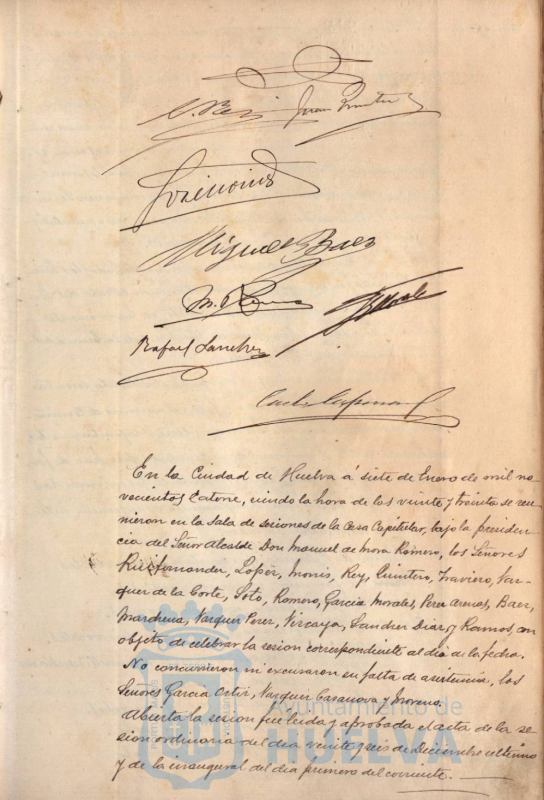 Miguel Baez
Rafael Sanchez
En la Ciudad de Huelva á siete de Enero de mil no-
vecientos catorce, siendo la hora de las veinte y treinta se reu-
nieron en la Sala de sesiones de la Casa Capitular, bajo la presiden-
cia del Señor Alcalde Don Manuel de Mora Romero, los Señores
Ruifernandez, López, Monis, Rey, Quintero, Traviero, Vaz-
quez de la Corte, Soto, Romero, Garcia Morales, Perez Arenas, Baez,
Mardena, Vazquez Perez, Vizcaya, Sanchez Diaz, y Ramos, con
objeto de celebrar la sesion correspondiente al dia de la fecha.
No concurrieron ni excusaron su falta de asistencia, los
Señores Garcia Ortiz, Vazquez Casanova y Moreno.
Abierta la sesion fue leida y aprobada el acta de la se-
sion ordinaria del dia veinte y seis de Diciembre ultimo
y de la inaugural del dia primero del corriente.
Ayuntamiento de
HUELVA